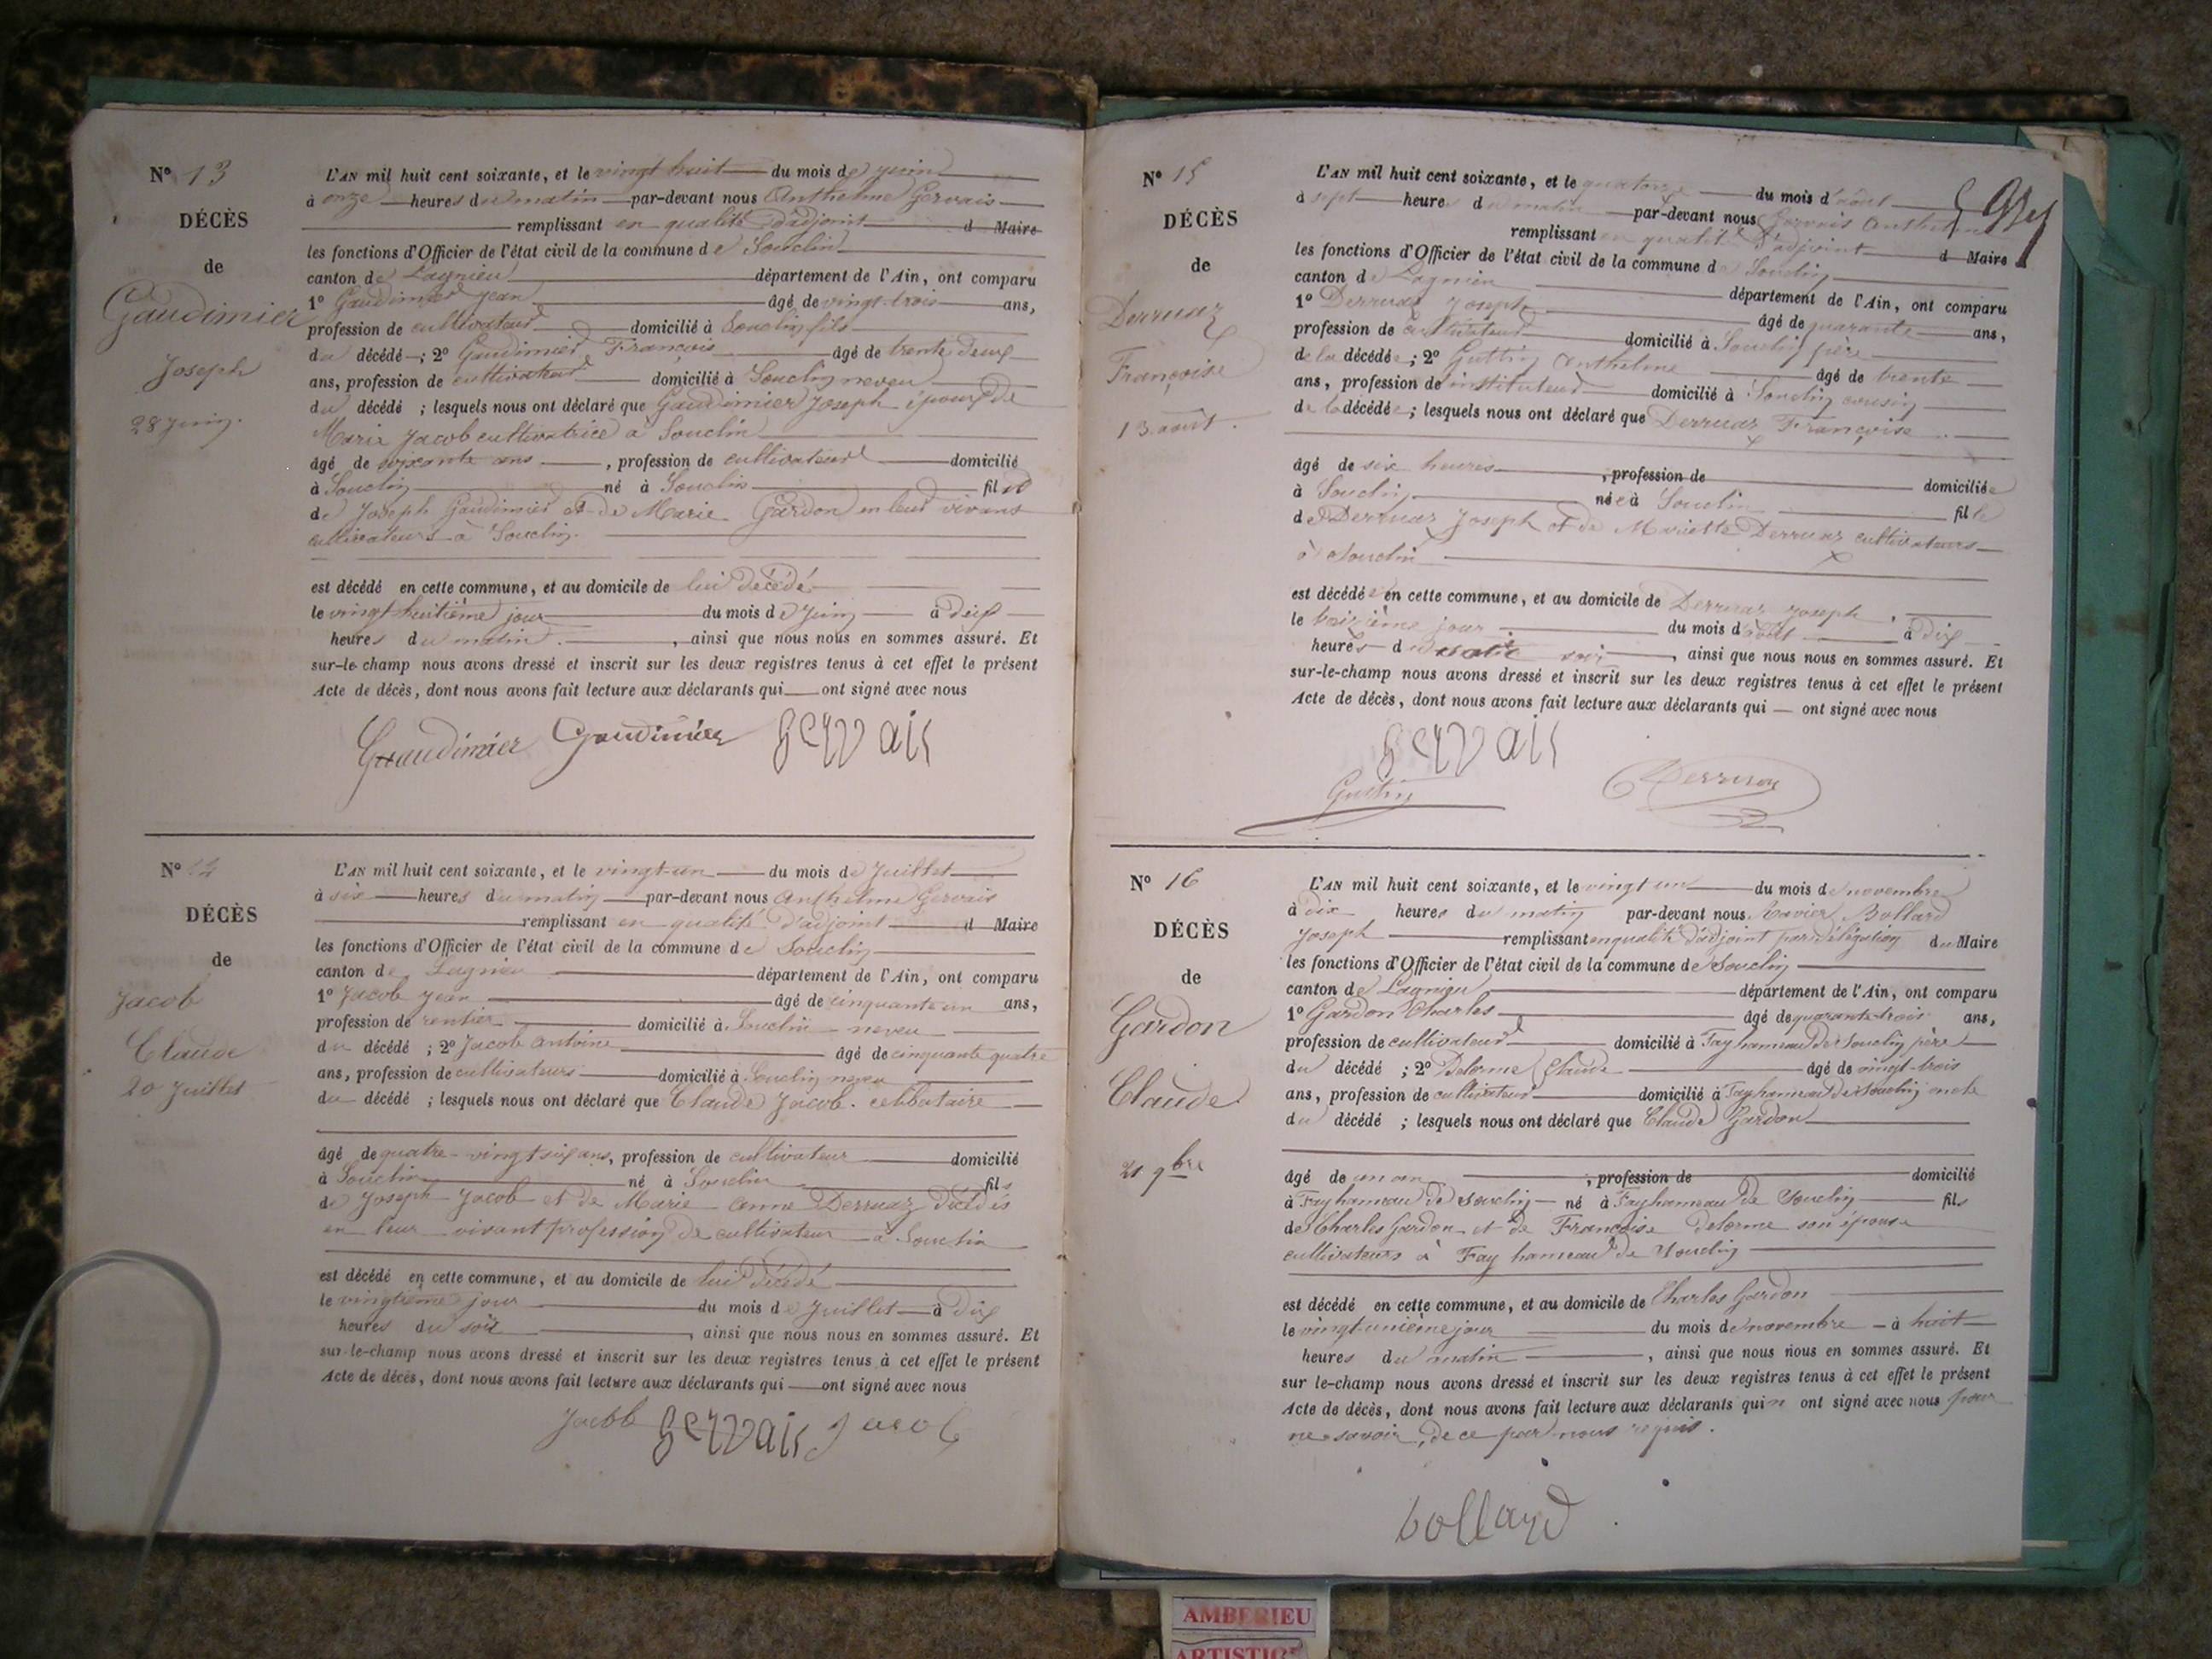 N° 13
DÉCÈS
de
Gaudimier
Joseph
28 juin.
L'AN mil huit cent soixante, et le vingt huit du mois de juin
à onze heures du matin par-devant nous Anthelme Gervais
remplissant en qualité d'adjoint d Maire
les fonctions d'Officier de l'état civil de la commune de Souclin
canton de Lagnieu département de l'Ain, ont comparu
1° Gaudimier jean âgé de vingt-trois ans,
profession de cultivateur domicilié à Souclin fils
du décédé ; 2° Gaudimier François âgé de trente deux
ans, profession de cultivateur domicilié à Souclin neveu
du décédé ; lesquels nous ont déclaré que Gaudimier Joseph époux de
Marie Jacob cultivatrice à Souclin
âgé de soixante ans , profession de cultivateur domicilié
à Souclin né à Souclin fils
de Joseph Gaudimier et de Marie Gardon en leur vivans
cultivateurs à Souclin.
est décédé en cette commune, et au domicile de lui décédé
le vingt huitième jour du mois de juin à dix
heures du matin , ainsi que nous nous en sommes assuré. Et
sur-le-champ nous avons dressé et inscrit sur les deux registres tenus à cet effet le présent
Acte de décès, dont nous avons fait lecture aux déclarants qui ont signé avec nous
Gaudimier Gaudimier gervais
N° 14
DÉCÈS
de
Jacob
Claude
20 Juillet
L'AN mil huit cent soixante, et le vingt-un du mois de Juillet
à six heures du matin par-devant nous Anthelme Gervais
remplissant en qualité d'adjoint d Maire
les fonctions d'Officier de l'état civil de la commune de Souclin
canton de Lagnieu département de l'Ain, ont comparu
1° Jacob Jean âgé de cinquante un ans,
profession de rentier domicilié à Souclin neveu
du décédé ; 2° Jacob Antoine âgé de cinquante quatre
ans, profession de cultivateurs domicilié à Souclin neveu
du décédé ; lesquels nous ont déclaré que Claude Jacob. célibataire
âgé de quatre-vingt six ans, profession de cultivateur domicilié
à Souclin né à Souclin fils
de Joseph Jacob et de Marie Anne Derruaz décédés
en leur vivant profession de cultivateur à Souclin
est décédé en cette commune, et au domicile de lui décédé
le vingtième jour du mois de Juillet à dix
heures du soir , ainsi que nous nous en sommes assuré. Et
sur-le-champ nous avons dressé et inscrit sur les deux registres tenus à cet effet le présent
Acte de décès, dont nous avons fait lecture aux déclarants qui ont signé avec nous
Jacob gervais jacob
N° 15
DÉCÈS
de
Derruaz
Françoise
13 août.
L'AN mil huit cent soixante, et le quatorze du mois d'août
à sept heures du matin par-devant nous Gervais Anthelme
remplissant en qualité d'adjoint d Maire
les fonctions d'Officier de l'état civil de la commune de Souclin
canton de Lagnieu département de l'Ain, ont comparu
1° Derruaz Joseph âgé de quarante ans,
profession de cultivateur domicilié à Souclin père
de la décédée ; 2° Guttin Anthelme âgé de trente
ans, profession de instituteur domicilié à Souclin cousin
de la décédée ; lesquels nous ont déclaré que Derruaz Françoise
âgé de six heures , profession de domiciliée
à Souclin née à Souclin fille
de Derruaz Joseph et de Mariette Derruaz cultivateurs
à Souclin
est décédée en cette commune, et au domicile de Derruaz Joseph
le treizième jour du mois d'août à dix
heures du soir , ainsi que nous nous en sommes assuré. Et
sur-le-champ nous avons dressé et inscrit sur les deux registres tenus à cet effet le présent
Acte de décès, dont nous avons fait lecture aux déclarants qui ont signé avec nous
gervais
Guttin Derruaz
N° 16
DÉCÈS
de
Gardon
Claude
21 9bre
L'AN mil huit cent soixante, et le vingt un du mois de novembre
à dix heures du matin par-devant nous Xavier Bollard
Joseph remplissant en qualité d'adjoint par délégation du Maire
les fonctions d'Officier de l'état civil de la commune de Souclin
canton de Lagnieu département de l'Ain, ont comparu
1° Gardon Charles âgé de quarante-trois ans,
profession de cultivateur domicilié à Fay hameau de Souclin père
du décédé ; 2° Delorme Claude âgé de vingt-trois
ans, profession de cultivateur domicilié à Fay hameau de Souclin oncle
du décédé ; lesquels nous ont déclaré que Claude Gardon
âgé de un an , profession de domicilié
à Fay hameau de Souclin né à Fay hameau de Souclin fils
de Charles Gardon et de Françoise Delorme son épouse
cultivateurs à Fay hameau de Souclin
est décédé en cette commune, et au domicile de Charles Gardon
le vingt-unième jour du mois de novembre à huit
heures du matin , ainsi que nous nous en sommes assuré. Et
sur le-champ nous avons dressé et inscrit sur les deux registres tenus à cet effet le présent
Acte de décès, dont nous avons fait lecture aux déclarants qui n ont signé avec nous pour
ne savoir, de ce par nous requis.
bollard
AMBERIEU